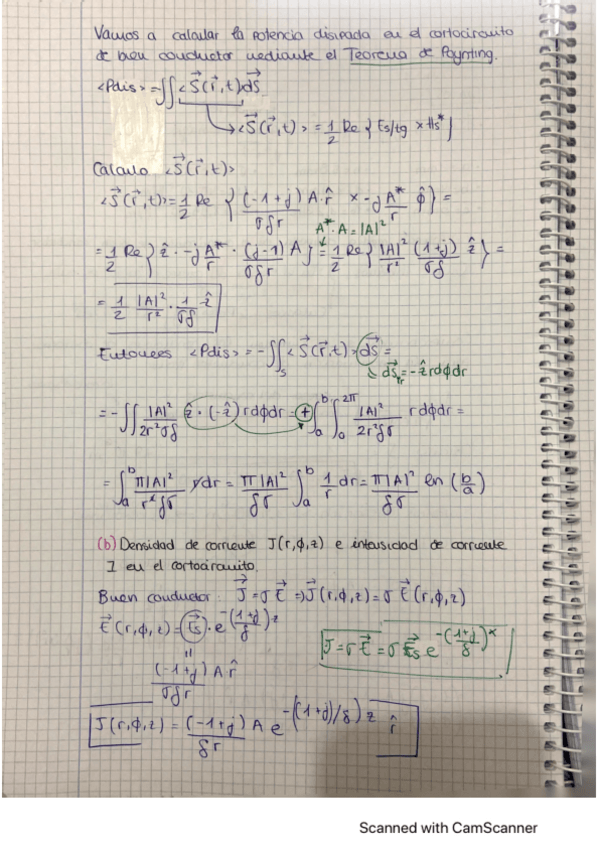 Vamos a calcular la potencia disipada en el cortocircuito
de buen conductor mediante el Teorema de Poynting.
<Pdis> = -∬ <S⃗(r⃗,t)> dS⃗
<S⃗(r⃗,t)> = 1/2 Re { Es/tg × Hs* }
Calculo <S⃗(r⃗,t)>
<S⃗(r⃗,t)> = 1/2 Re { (-1+j)/(σδr) A·r̂ × -j A*/r φ̂ } =
A*·A = |A|²
= 1/2 Re } ẑ · -j A*/r · (j-1)/(σδr) A } = 1/2 Re { |A|²/r² (1+j)/(σδ) ẑ } =
= 1/2 |A|²/r² · 1/(σδ) ẑ
Entonces <Pdis> = -∬s <S⃗(r⃗,t)> dS⃗ =
dS⃗ = -ẑ r dφ dr
= -∬ |A|²/(2r²σδ) ẑ · (-ẑ) r dφ dr = + ∫a^b ∫0^2π |A|²/(2r²δσ) r dφ dr =
= ∫a^b π|A|²/(r²δσ) r dr = π|A|²/(δσ) ∫a^b 1/r dr = π|A|²/(δσ) ln (b/a)
(b) Densidad de corriente J(r,φ,z) e intensidad de corriente
I en el cortocircuito.
Buen conductor: J⃗ = σE⃗ => J⃗(r,φ,z) = σ E⃗(r,φ,z)
E⃗(r,φ,z) = E⃗s · e^-((1+j)/δ)z
J = σE⃗ = σE⃗s e^-((1+j)/δ)x
=
(-1+j)/(σδr) A r̂
J(r,φ,z) = (-1+j)/(δr) A e^-((1+j)/δ)z r̂
Scanned with CamScanner